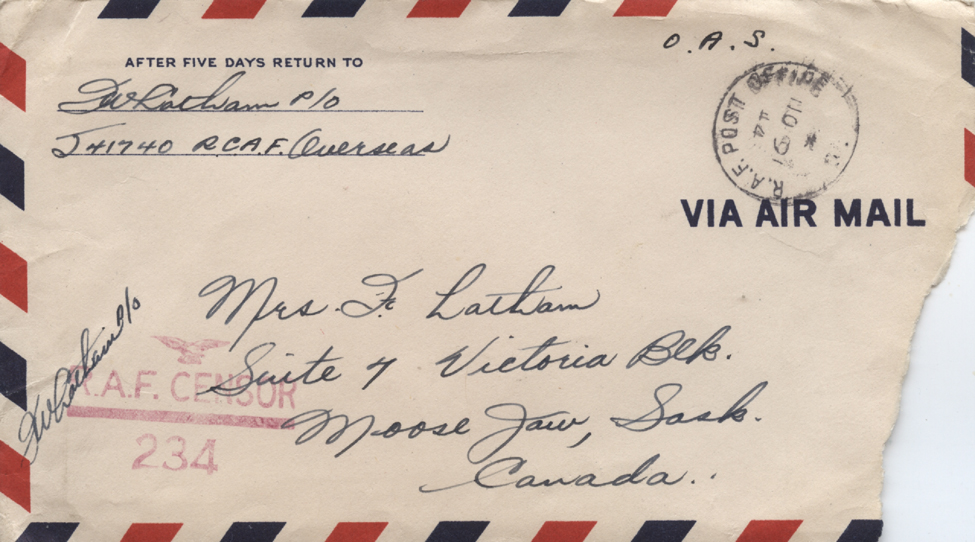 O. A. S.
AFTER FIVE DAYS RETURN TO
FW Latham P/O
J41740 R.C.A.F. Overseas
R.A.F. POST OFFICE
VIA AIR MAIL
Mrs. F. Latham
Suite 4 Victoria Blk.
Moose Jaw, Sask.
Canada..
FW Latham P/O
R.A.F. CENSOR
234